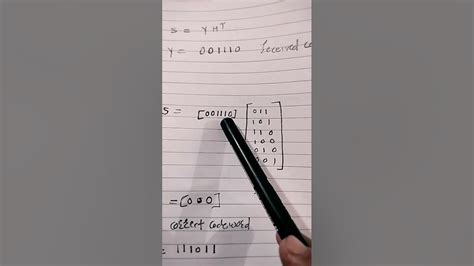 S = Y Hᵀ
Y = 001110 Received co
S = [001110]
011
101
110
100
010
001
= [000]
codeword
= 111011